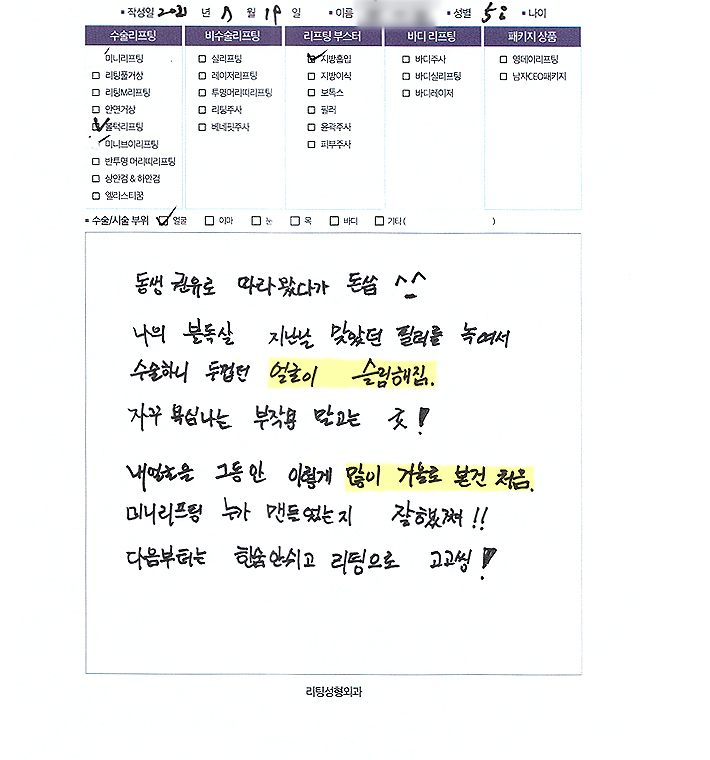 작성일 2021 년 월 19 일 이름 성별 나이
수술리프팅 비수술리프팅 리프팅 부스터 바디 리프팅 패키지 상품
미니리프팅 실리프팅 지방흡입 바디주사 영데이리프팅
리팅풀거상 레이저리프팅 지방이식 바디실리프팅 남자CEO패키지
리팅M리프팅 투명머리띠리프팅 보톡스 바디레이저
안면거상 리팅주사 필러
울턱리프팅 베네핏주사 윤곽주사
미니브이리프팅 피부주사
반투명 머리띠리프팅
상안검 & 하안검
엘리스티꿈
수술/시술 부위 얼굴 이마 눈 목 바디 기타 ( )
동생 권유로 따라 왔다가 돈씀 ^_^
나의 불독살 지난날 맞았던 필러를 녹여서
수술하니 두껍던 얼굴이 슬림해짐.
자꾸 욕심나는 부작용 말고는 굿!
내얼굴을 그동안 이렇게 많이 거울로 본건 처음.
미니리프팅 누가 만들었는지 잘했쪄!!
다음부터는 한숨안쉬고 리팅으로 고고씽!
리팅성형외과